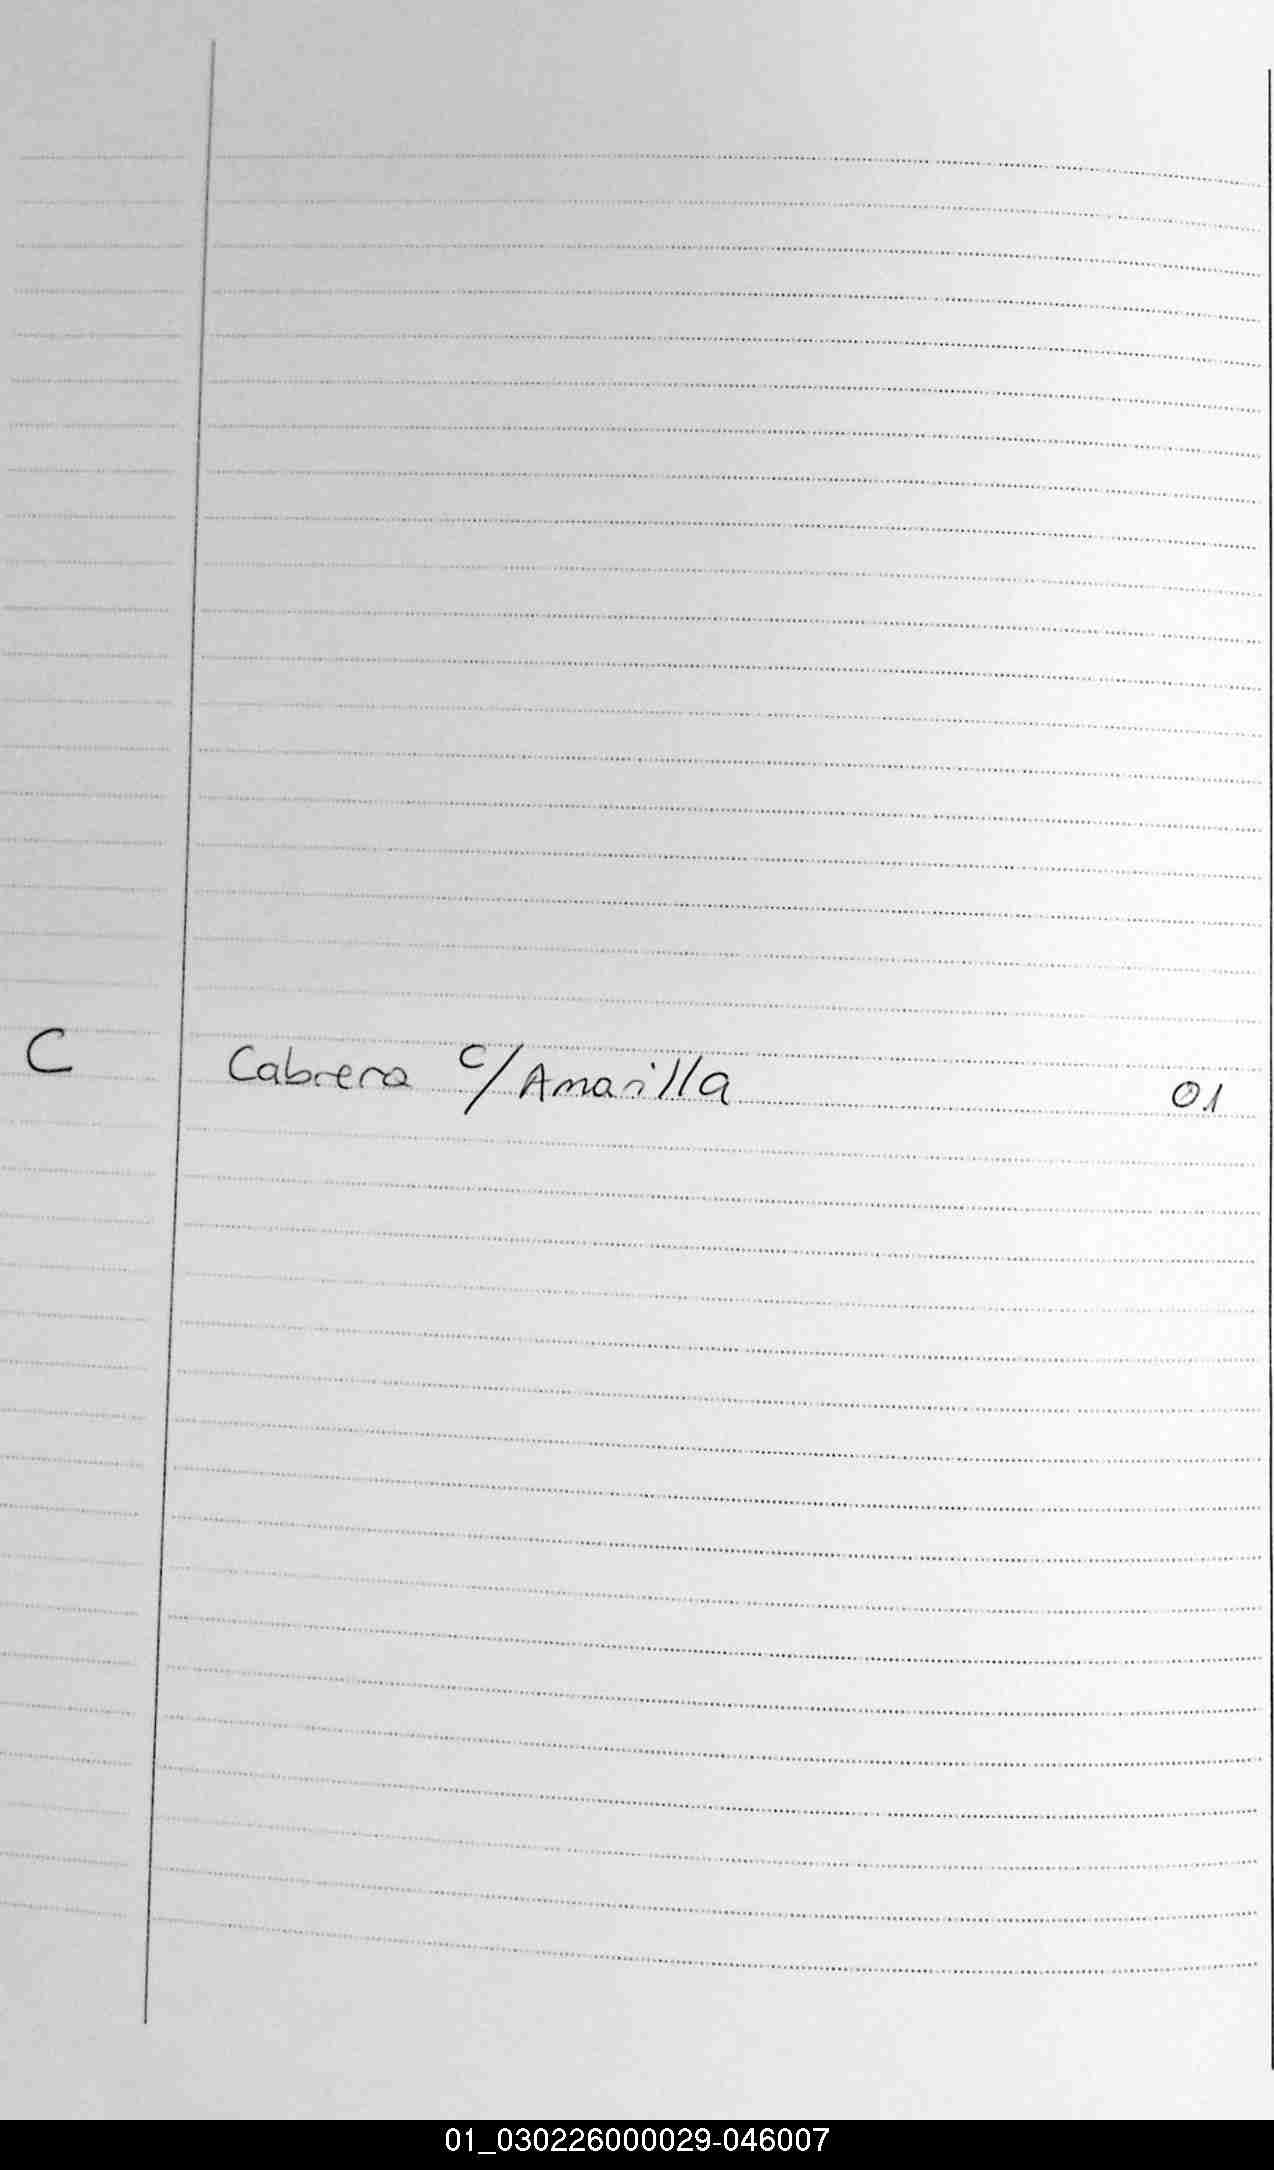 C Cabrera c/Amarilla 01
01_030226000029-046007